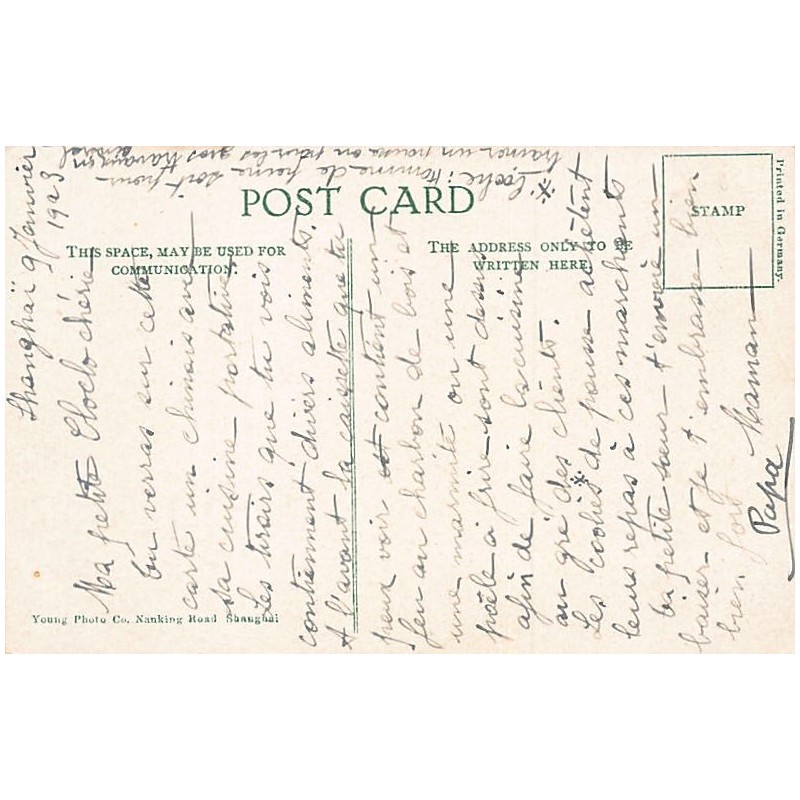 POST CARD
THIS SPACE, MAY BE USED FOR
COMMUNICATION.
THE ADDRESS ONLY TO BE
WRITTEN HERE.
STAMP
Printed in Germany.
Young Photo Co. Nanking Road Shanghai
Shanghaï 9 Janvier
1923
Ma petite Cloclo chérie
tu verras sur cette
carte un chinois avec
sa cuisine portative
Les tiroirs que tu vois
contiennent divers aliments.
A l'avant la caissete que tu
peux voir contient un
feu au charbon de bois et
une marmite ou une
poële à frir sont dessus
afin de faire la cuisine
au gré des clients.
Les coolies* de pousse achètent
leurs repas à ces marchants
ta petite sœur t'envoie un
baiser et je t'embrasse bien
bien fort
Maman
Papa
* Coolie: homme de peine soit pour
trainer un pousse ou pour les gros travaux en
général